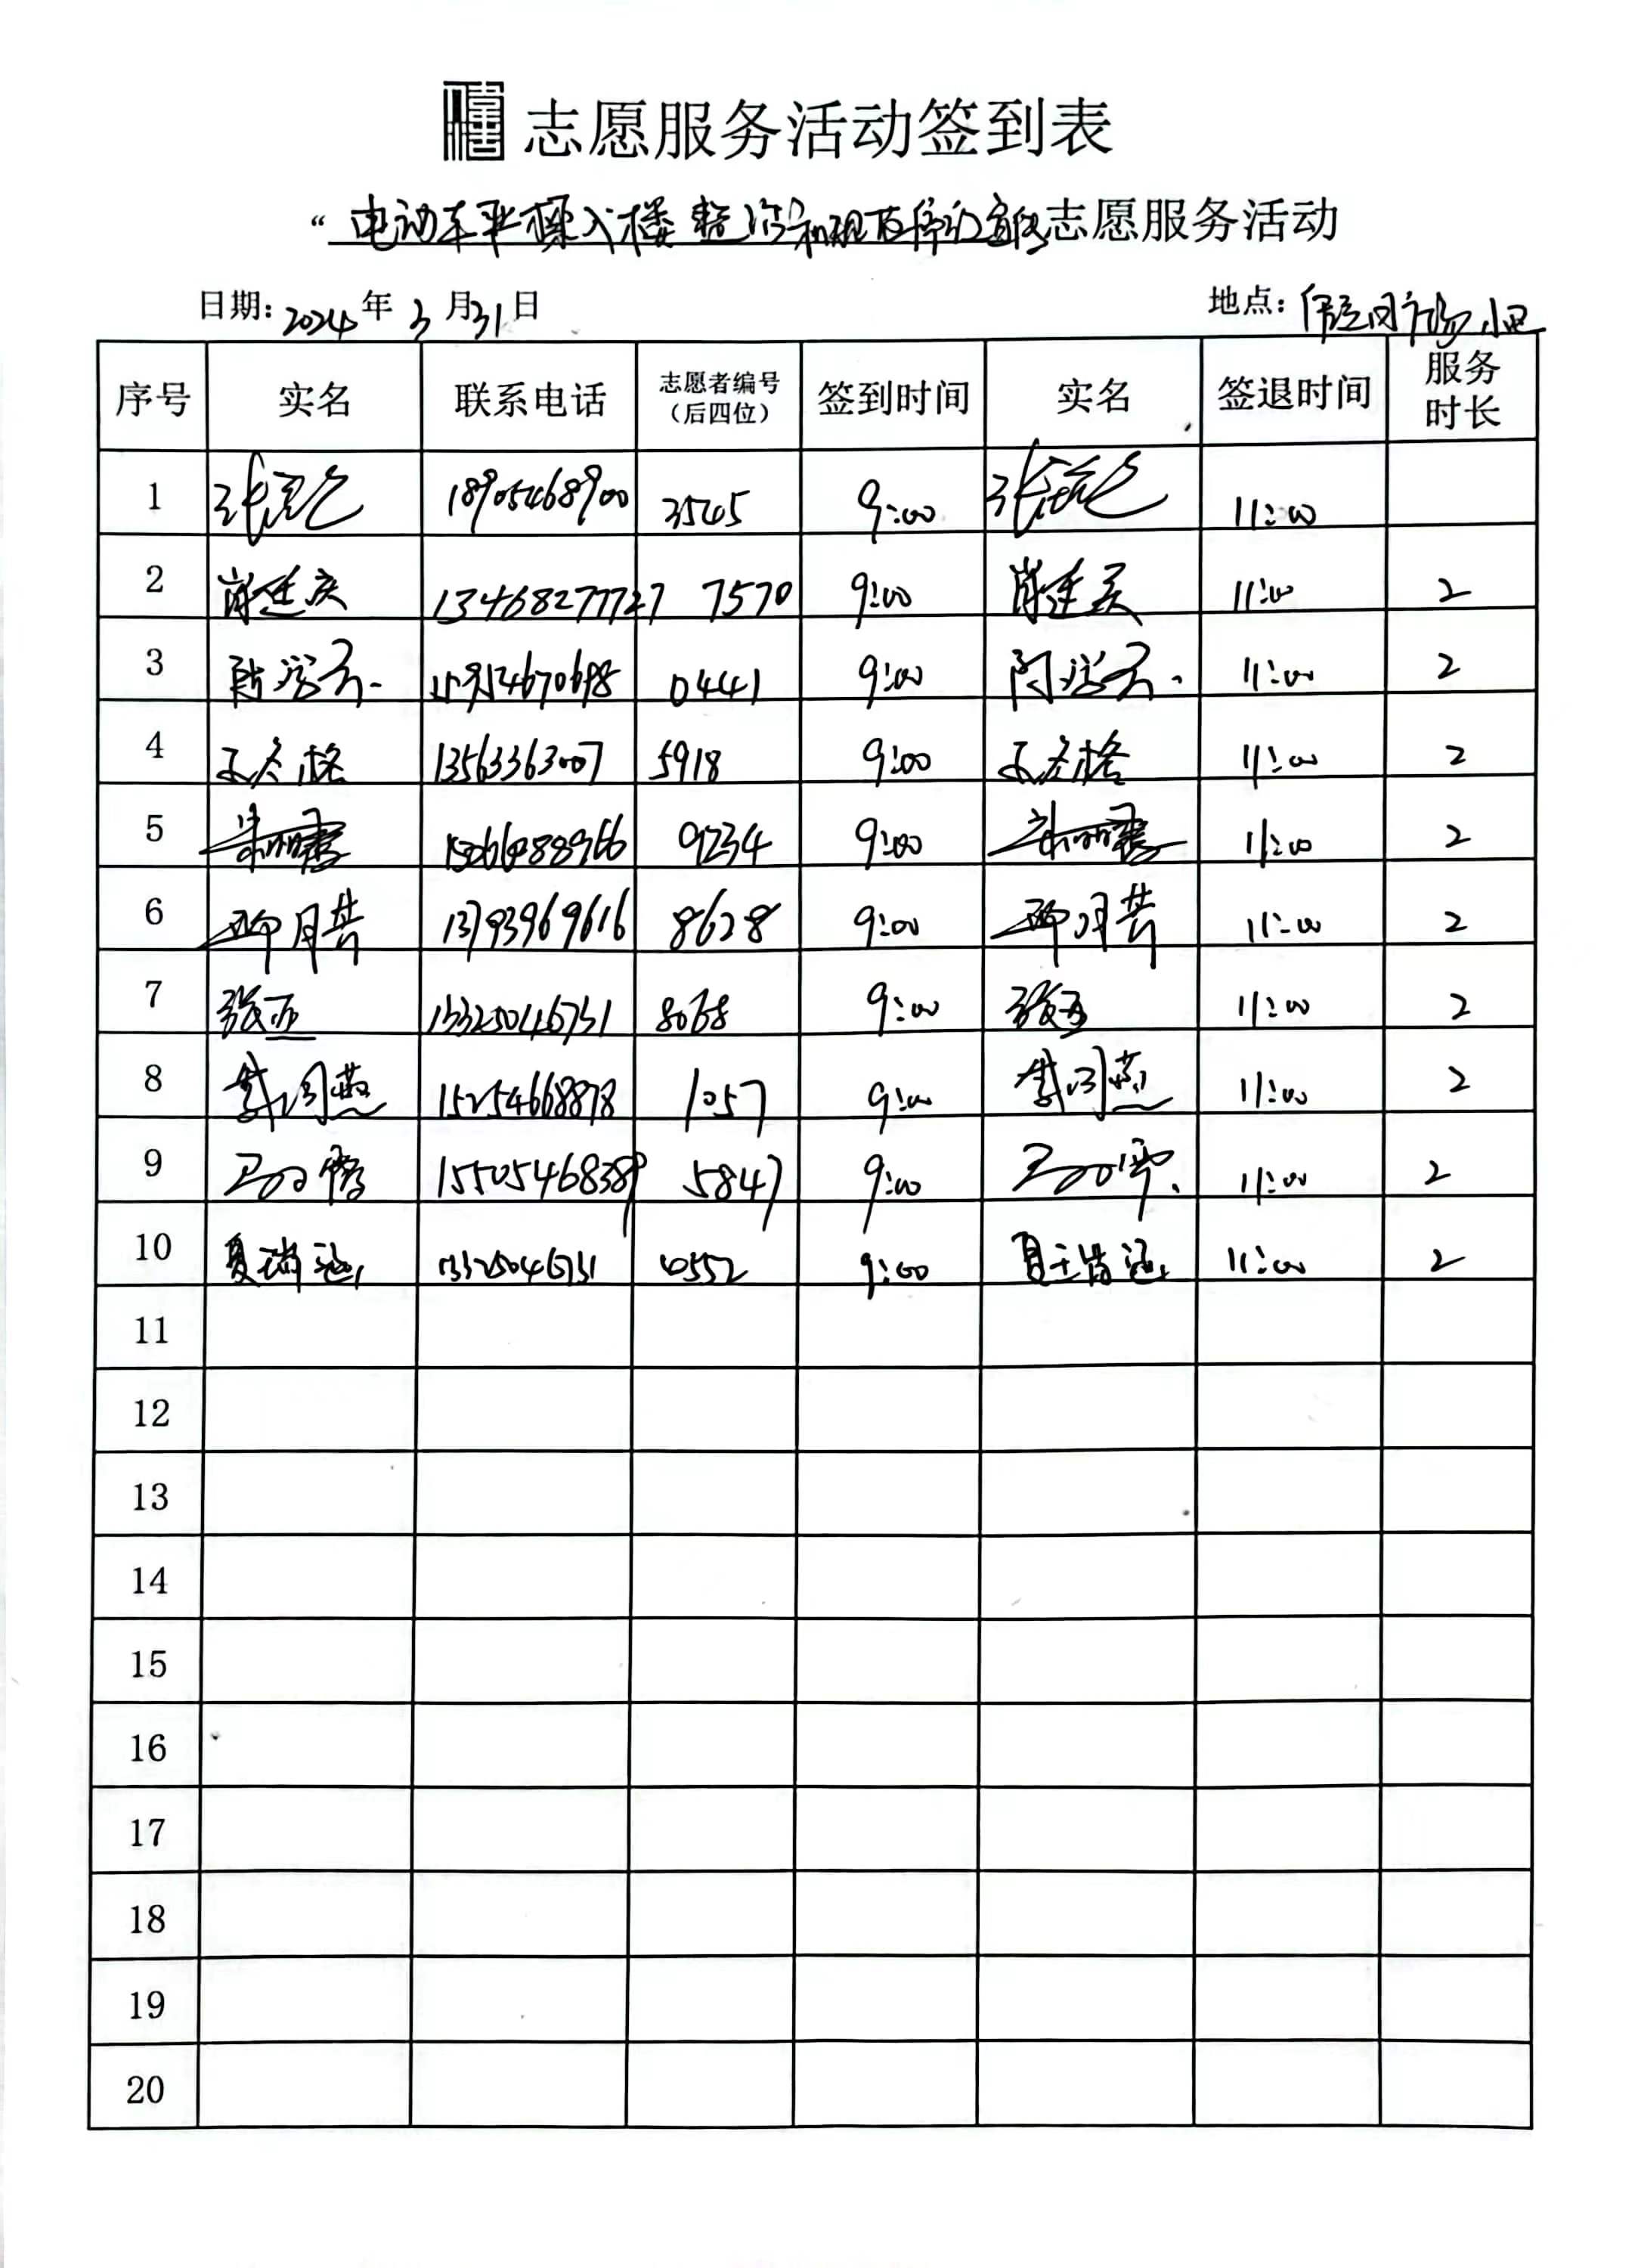 志愿服务活动签到表
“电动车 入楼 整治和规范停放宣传志愿服务活动
日期:2024年3月31日 地点: 小区
序号 实名 联系电话 志愿者编号(后四位) 签到时间 实名 签退时间 服务时长
1 18905468900 3545 9:00 11:00
2 肖廷庆 13468277727 7570 9:00 肖廷庆 11:00 2
3 0441 9:00 11:00 2
4 王冬格 13563363007 5918 9:00 王冬格 11:00 2
5 9234 9:00 11:00 2
6 13793969616 8628 9:00 11:00 2
7 张亚 13325046731 8068 9:00 张亚 11:00 2
8 15254668878 1057 9:00 11:00 2
9 15505468389 5847 9:00 11:00 2
10 夏瑞涵 13325046731 0552 9:00 夏瑞涵 11:00 2
11
12
13
14
15
16
17
18
19
20